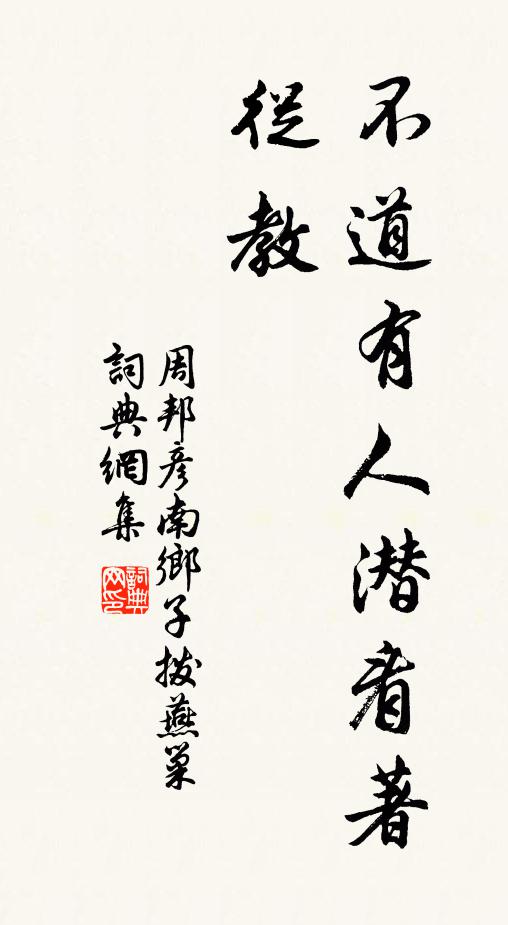 不道有人潜看著
從教
周邦彥南鄉子撥燕巢
詞典網集
詞典网印